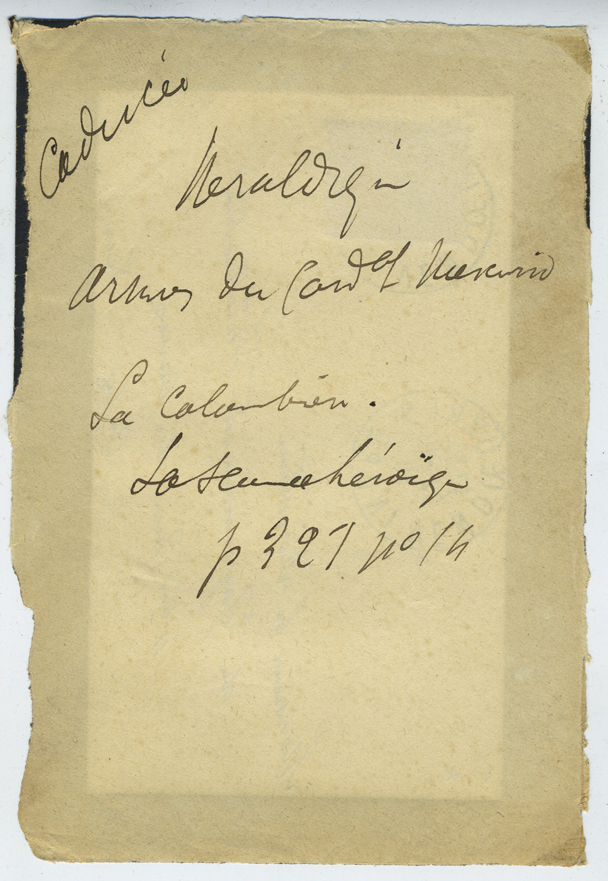 Caducée
Heraldique
Armes du Card^al
La Colombière.
La Science héroïque
p 327 no 14